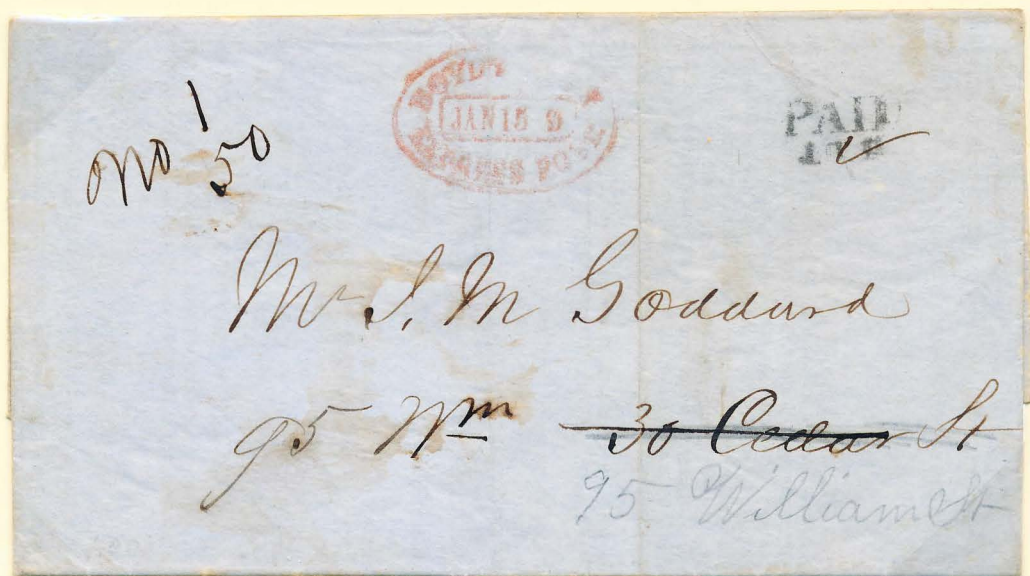 BOYD'S
JAN 15 9
EXPRESS POST
PAID
No 1
50
Mr J. M Goddard
95 Wm 30 Cedar St
95 William St